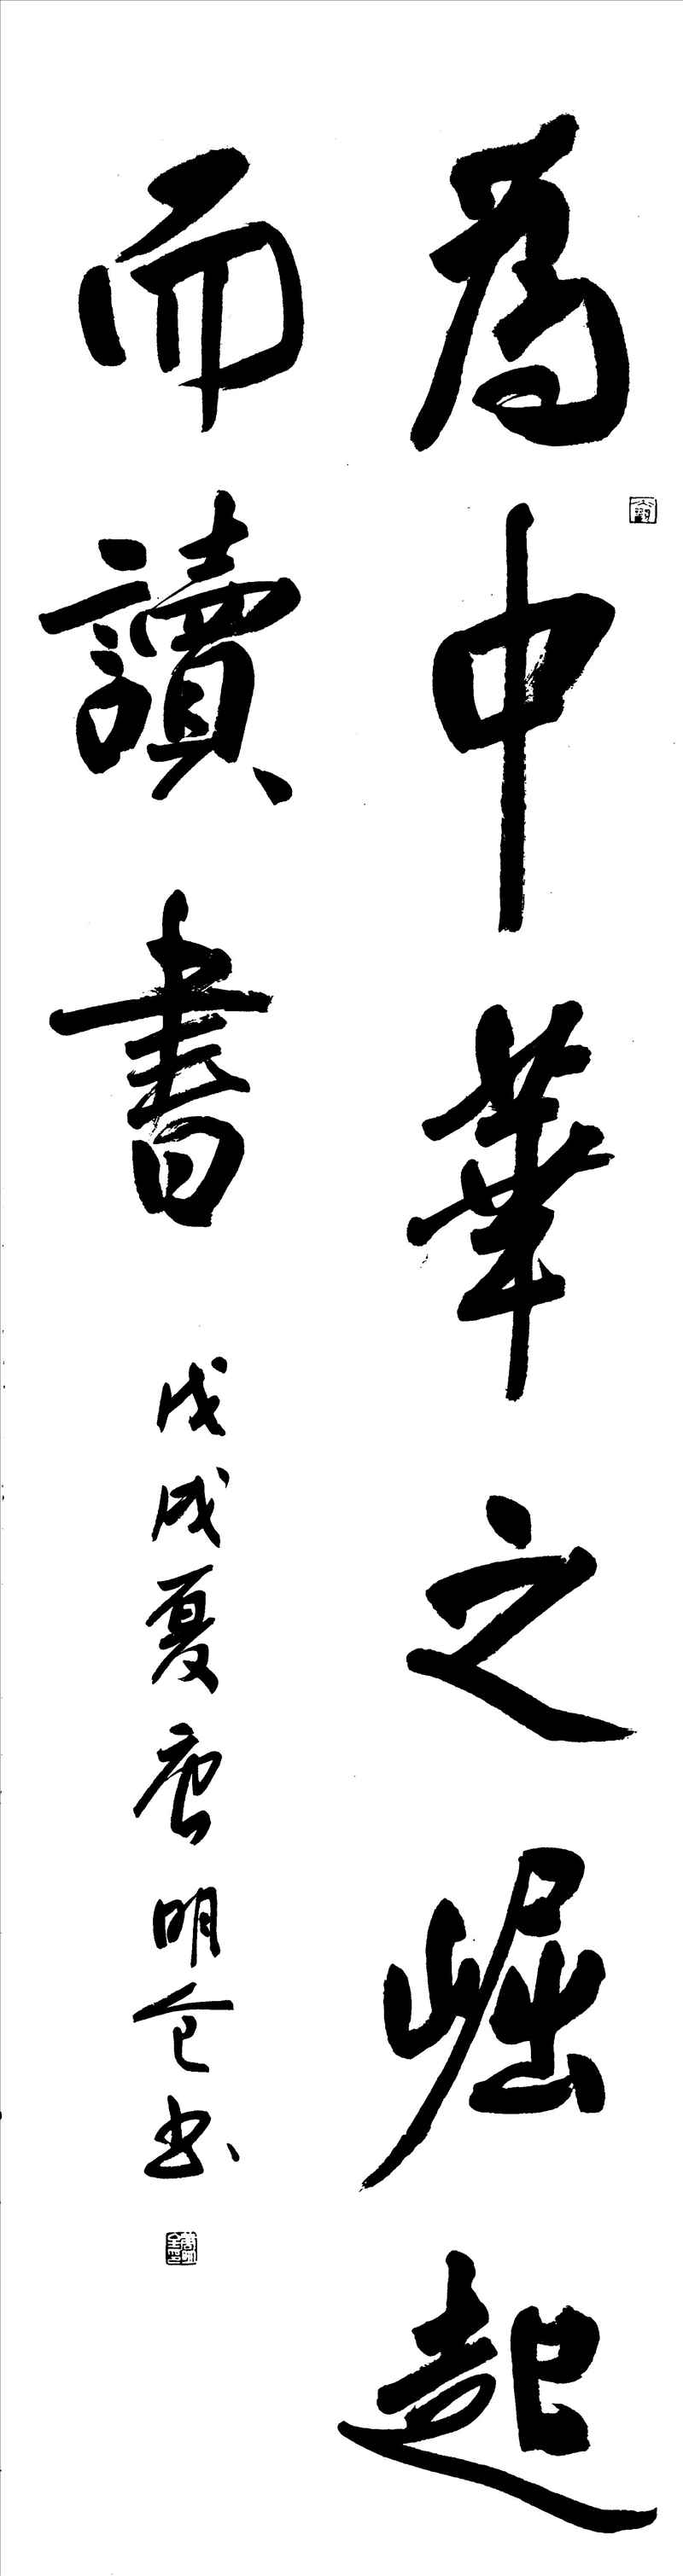 為中華之崛起
而讀書
戊戌夏唐明仓书